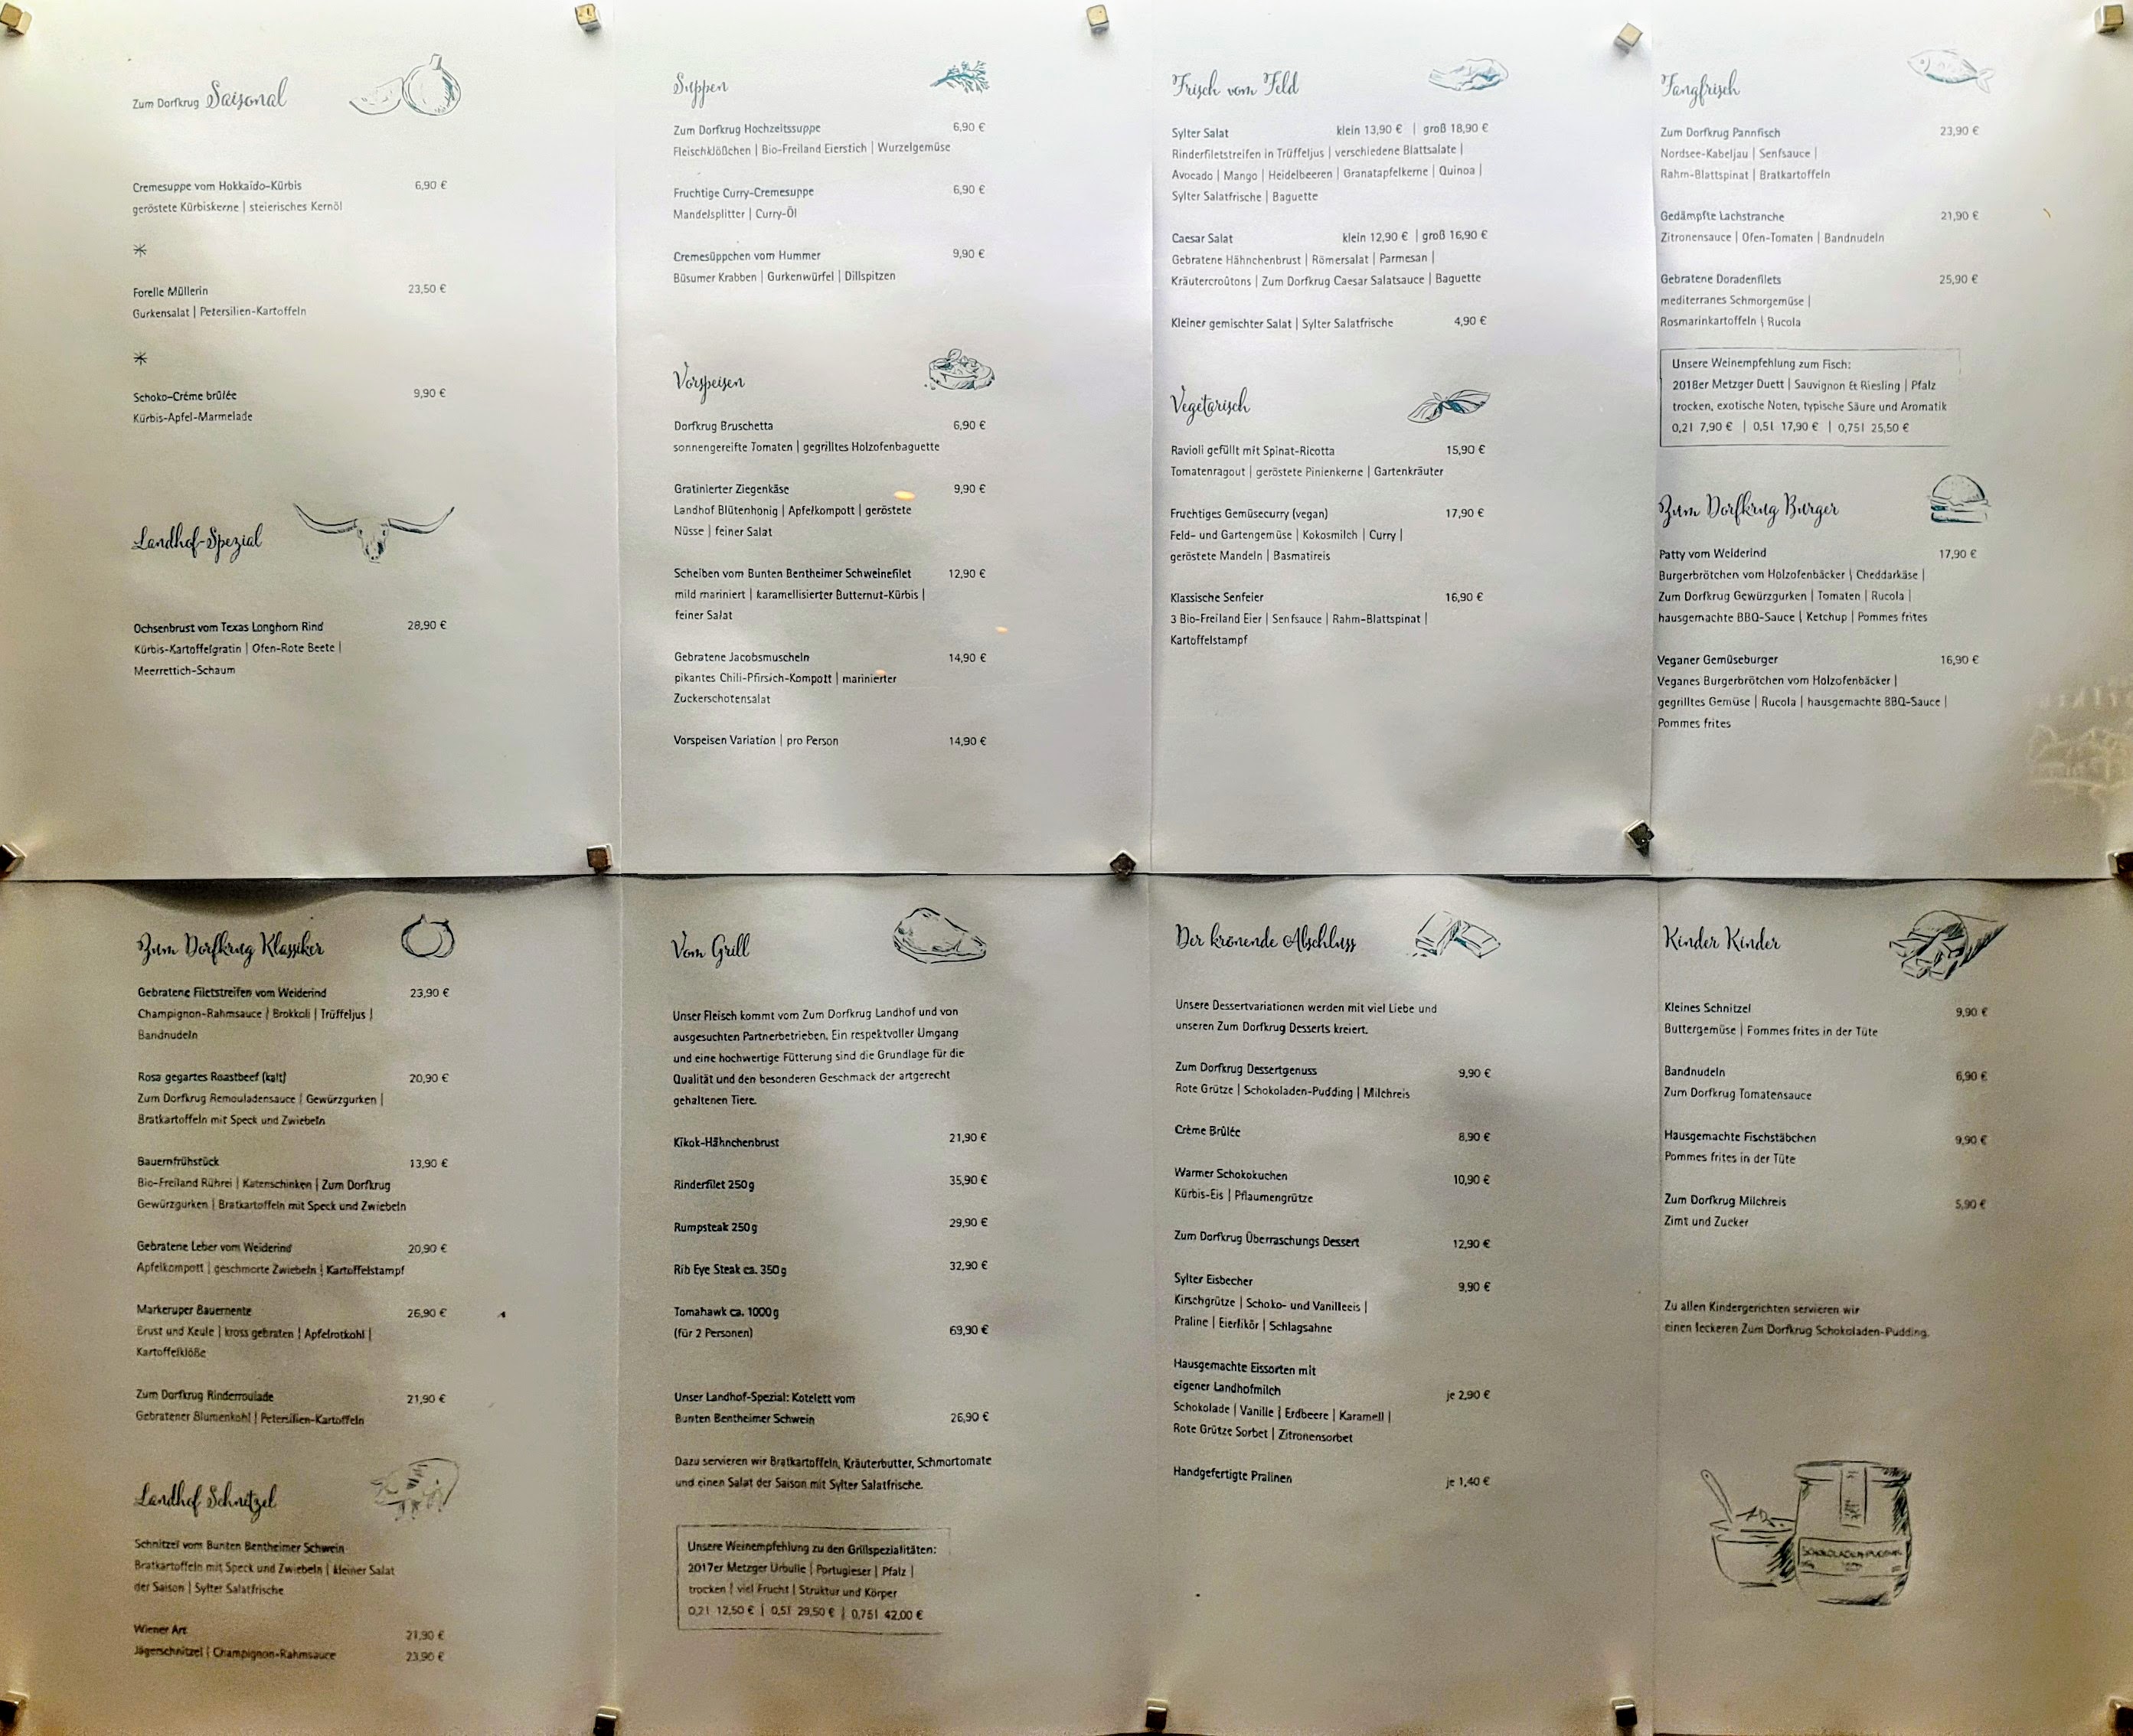 Zum Dorfkrug Saisonal
Cremesuppe vom Hokkaido-Kürbis 6,90 €
geröstete Kürbiskerne | steierisches Kernöl
Forelle Müllerin 23,50 €
Gurkensalat | Petersilien-Kartoffeln
Schoko-Crème brûlée 9,90 €
Kürbis-Apfel-Marmelade
Landhof-Spezial
Ochsenbrust vom Texas Longhorn Rind 28,90 €
Kürbis-Kartoffelgratin | Ofen-Rote Beete |
Meerrettich-Schaum
Suppen
Zum Dorfkrug Hochzeitssuppe 6,90 €
Fleischklößchen | Bio-Freiland Eierstich | Wurzelgemüse
Fruchtige Curry-Cremesuppe 6,90 €
Mandelsplitter | Curry-Öl
Cremesüppchen vom Hummer 9,90 €
Büsumer Krabben | Gurkenwürfel | Dillspitzen
Vorspeisen
Dorfkrug Bruschetta 6,90 €
sonnengereifte Tomaten | gegrilltes Holzofenbaguette
Gratinierter Ziegenkäse 9,90 €
Landhof Blütenhonig | Apfelkompott | geröstete
Nüsse | feiner Salat
Scheiben vom Bunten Bentheimer Schweinefilet 12,90 €
mild mariniert | karamellisierter Butternut-Kürbis |
feiner Salat
Gebratene Jacobsmuscheln 14,90 €
pikantes Chili-Pfirsich-Kompott | marinierter
Zuckerschotensalat
Vorspeisen Variation | pro Person 14,90 €
Frisch vom Feld
Sylter Salat klein 13,90 € | groß 18,90 €
Rinderfiletstreifen in Trüffeljus | verschiedene Blattsalate |
Avocado | Mango | Heidelbeeren | Granatapfelkerne | Quinoa |
Sylter Salatfrische | Baguette
Caesar Salat klein 12,90 € | groß 16,90 €
Gebratene Hähnchenbrust | Römersalat | Parmesan |
Kräutercroûtons | Zum Dorfkrug Caesar Salatsauce | Baguette
Kleiner gemischter Salat | Sylter Salatfrische 4,90 €
Vegetarisch
Ravioli gefüllt mit Spinat-Ricotta 15,90 €
Tomatenragout | geröstete Pinienkerne | Gartenkräuter
Fruchtiges Gemüsecurry (vegan) 17,90 €
Feld- und Gartengemüse | Kokosmilch | Curry |
geröstete Mandeln | Basmatireis
Klassische Senfeier 16,90 €
3 Bio-Freiland Eier | Senfsauce | Rahm-Blattspinat |
Kartoffelstampf
Fangfrisch
Zum Dorfkrug Pannfisch 23,90 €
Nordsee-Kabeljau | Senfsauce |
Rahm-Blattspinat | Bratkartoffeln
Gedämpfte Lachstranche 21,90 €
Zitronensauce | Ofen-Tomaten | Bandnudeln
Gebratene Doradenfilets 25,90 €
mediterranes Schmorgemüse |
Rosmarinkartoffeln | Rucola
Unsere Weinempfehlung zum Fisch:
2018er Metzger Duett | Sauvignon & Riesling | Pfalz
trocken, exotische Noten, typische Säure und Aromatik
0,2l 7,90 € | 0,5l 17,90 € | 0,75l 25,50 €
Zum Dorfkrug Burger
Patty vom Weiderind 17,90 €
Burgerbrötchen vom Holzofenbäcker | Cheddarkäse |
Zum Dorfkrug Gewürzgurken | Tomaten | Rucola |
hausgemachte BBQ-Sauce | Ketchup | Pommes frites
Veganer Gemüseburger 16,90 €
Veganes Burgerbrötchen vom Holzofenbäcker |
gegrilltes Gemüse | Rucola | hausgemachte BBQ-Sauce |
Pommes frites
Zum Dorfkrug Klassiker
Gebratene Filetstreifen vom Weiderind 23,90 €
Champignon-Rahmsauce | Brokkoli | Trüffeljus |
Bandnudeln
Rosa gegartes Roastbeef (kalt) 20,90 €
Zum Dorfkrug Remouladensauce | Gewürzgurken |
Bratkartoffeln mit Speck und Zwiebeln
Bauernfrühstück 13,90 €
Bio-Freiland Rührei | Katenschinken | Zum Dorfkrug
Gewürzgurken | Bratkartoffeln mit Speck und Zwiebeln
Gebratene Leber vom Weiderind 20,90 €
Apfelkompott | geschmorte Zwiebeln | Kartoffelstampf
Markeruper Bauernente 26,90 €
Brust und Keule | kross gebraten | Apfelrotkohl |
Kartoffelklöße
Zum Dorfkrug Rinderroulade 21,90 €
Gebratener Blumenkohl | Petersilien-Kartoffeln
Landhof Schnitzel
Schnitzel vom Bunten Bentheimer Schwein
Bratkartoffeln mit Speck und Zwiebeln | kleiner Salat
der Saison | Sylter Salatfrische
Wiener Art 21,90 €
Jägerschnitzel | Champignon-Rahmsauce 23,90 €
Vom Grill
Unser Fleisch kommt vom Zum Dorfkrug Landhof und von
ausgesuchten Partnerbetrieben. Ein respektvoller Umgang
und eine hochwertige Fütterung sind die Grundlage für die
Qualität und den besonderen Geschmack der artgerecht
gehaltenen Tiere.
Kikok-Hähnchenbrust 21,90 €
Rinderfilet 250 g 35,90 €
Rumpsteak 250 g 29,90 €
Rib Eye Steak ca. 350 g 32,90 €
Tomahawk ca. 1000 g
(für 2 Personen) 69,90 €
Unser Landhof-Spezial: Kotelett vom
Bunten Bentheimer Schwein 26,90 €
Dazu servieren wir Bratkartoffeln, Kräuterbutter, Schmortomate
und einen Salat der Saison mit Sylter Salatfrische.
Unsere Weinempfehlung zu den Grillspezialitäten:
2017er Metzger Urbulle | Portugieser | Pfalz |
trocken | viel Frucht | Struktur und Körper
0,2l 12,50 € | 0,5l 29,50 € | 0,75l 42,00 €
Der krönende Abschluss
Unsere Dessertvariationen werden mit viel Liebe und
unseren Zum Dorfkrug Desserts kreiert.
Zum Dorfkrug Dessertgenuss 9,90 €
Rote Grütze | Schokoladen-Pudding | Milchreis
Crème Brûlée 8,90 €
Warmer Schokokuchen 10,90 €
Kürbis-Eis | Pflaumengrütze
Zum Dorfkrug Überraschungs Dessert 12,90 €
Sylter Eisbecher 9,90 €
Kirschgrütze | Schoko- und Vanilleeis |
Praline | Eierlikör | Schlagsahne
Hausgemachte Eissorten mit
eigener Landhofmilch je 2,90 €
Schokolade | Vanille | Erdbeere | Karamell |
Rote Grütze Sorbet | Zitronensorbet
Handgefertigte Pralinen je 1,40 €
Kinder Kinder
Kleines Schnitzel 9,90 €
Buttergemüse | Pommes frites in der Tüte
Bandnudeln 6,90 €
Zum Dorfkrug Tomatensauce
Hausgemachte Fischstäbchen 9,90 €
Pommes frites in der Tüte
Zum Dorfkrug Milchreis 5,90 €
Zimt und Zucker
Zu allen Kindergerichten servieren wir
einen leckeren Zum Dorfkrug Schokoladen-Pudding.
SCHOKOLADEN-PUDDING